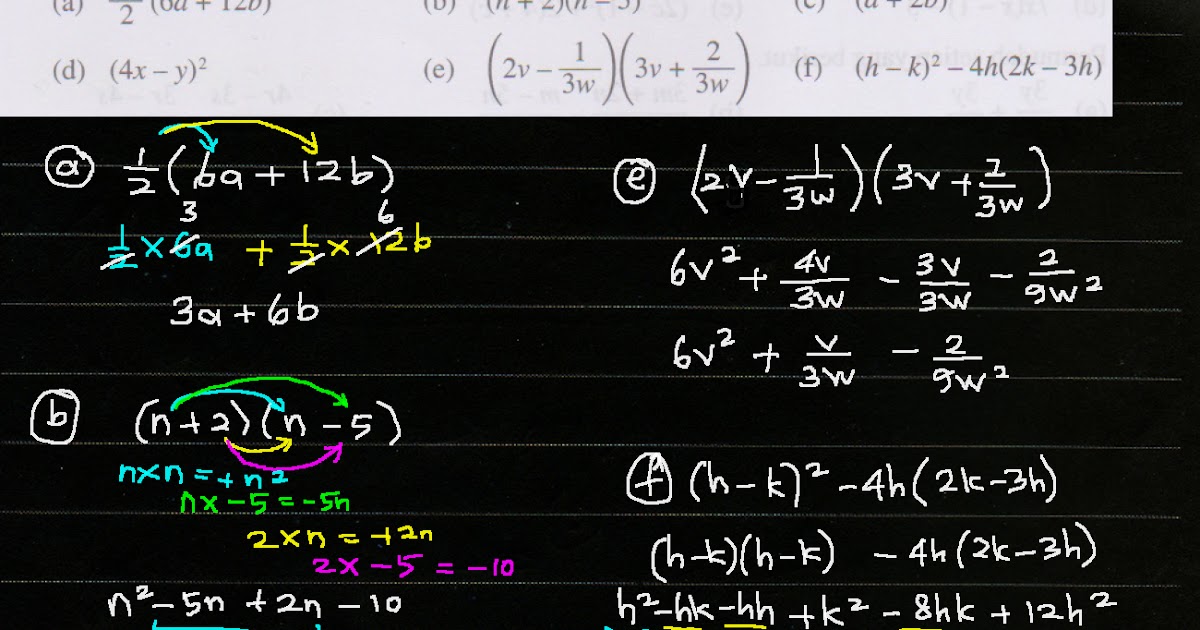 (a) 1/2 (6a + 12b) (b) (n + 2)(n − 5) (c) (a + 2b)²
(d) (4x − y)² (e) (2v − 1/3w)(3v + 2/3w) (f) (h − k)² − 4h(2k − 3h)
(a) 1/2 (6a + 12b)
3 6
1/2 × 6a + 1/2 × 12b
3a + 6b
(b) (n + 2)(n − 5)
n × n = + n²
n × −5 = −5n
2 × n = +2n
2 × −5 = −10
n² − 5n + 2n − 10
(e) (2v − 1/3w)(3v + 2/3w)
6v² + 4v/3w − 3v/3w − 2/9w²
6v² + v/3w − 2/9w²
(f) (h − k)² − 4h(2k − 3h)
(h − k)(h − k) − 4h(2k − 3h)
h² − hk − hh + k² − 8hk + 12h²